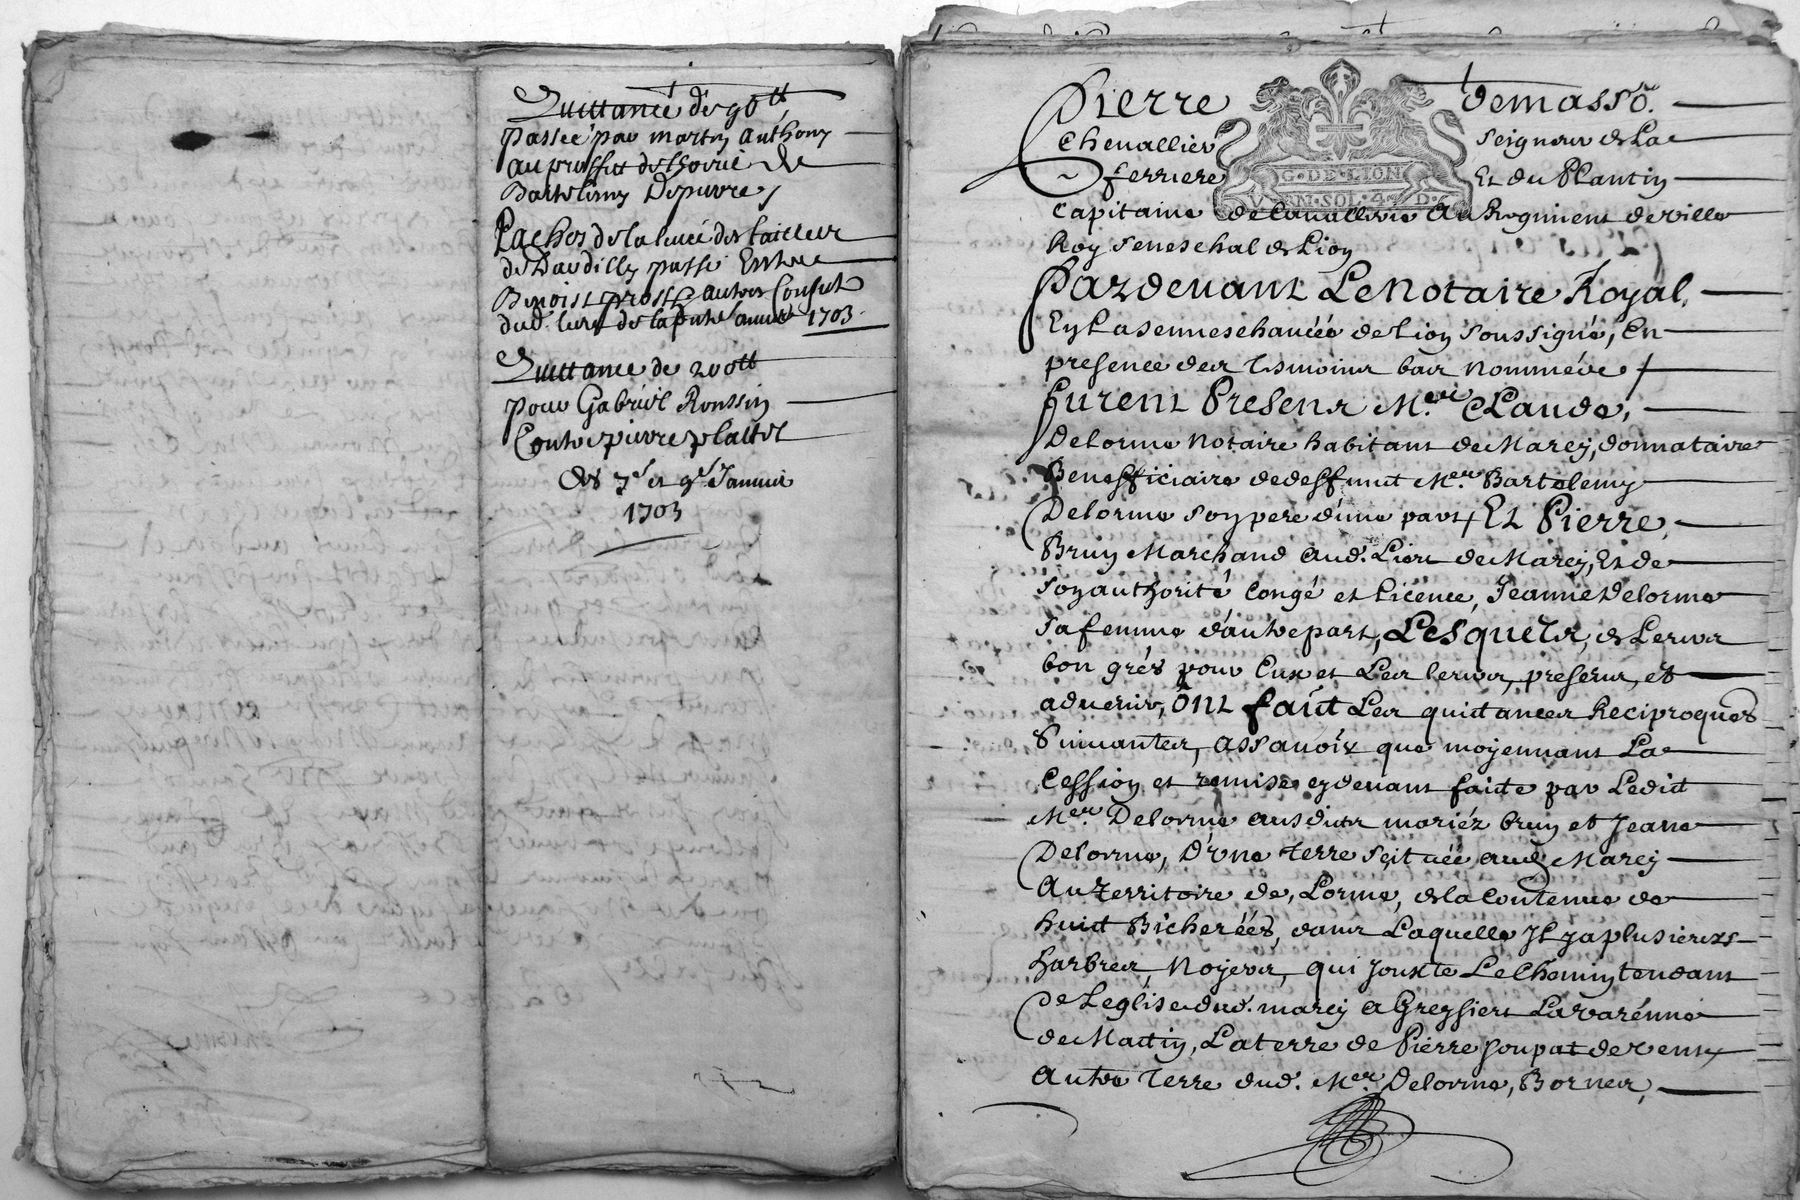 Quittance de 90 tt
passée par martin Anthony
au proffit de
Bartelemy Depierre
Paches de la levée des tailles
de Dardilly passé Entre
Benoist prost & autres Consuls
dud. lieu de la pnte année 1703
Quittance de 200 tt
pour Gabriel Roussin
Contre pierre plattel
des 7e et 9e Janvier
1703
Pierre demasso.
Chevallier seigneur de La
ferriere Et du Plantin
G·DE·LION
VN·SOL·4·D·
Capitaine de Cavallerie Au Regiment de ville
Roy seneschal de Lion
Pardevant Le Notaire Royal,
En La senneschaucée de Lion soussigné, En
presence des tesmoins bas nommées
furent Presens Mere. Claude,
Delorme Notaire habitant de Marcy, donnataire
Benefficiaire de deffunct Mere. Bartelemy
Delorme son pere d'une part, Et Pierre,
Brun Marchand aud. Lieu de Marcy, Et de
son authorité Congé et Licence, Jeanne Delorme
sa femme d'autre part, Lesquels, de Leurs
bon grés pour Eux et Les Leurs, presens, et
advenir, Ont fait Les quictances Reciproques
Suivantes, Assavoir que moyennant La
Cession et remise cydevant faicte par Ledit
Mere. Delorme ausdicts mariéz brun et Jeane
Delorme, D'une Terre scituéé aud. Marcy
Au Territoire de, Lorme, de la Contenue de
huict Bicheréés, dans Laquelle Il y a plusieurs
harbres Noyers, qui Jouxte Le Chemin tendant
de Leglise dud. marcy a Greysieu La varénne
de Mattin, La terre de Pierre de vent,
Autre Terre dud. Mere. Delorme, Bornes,